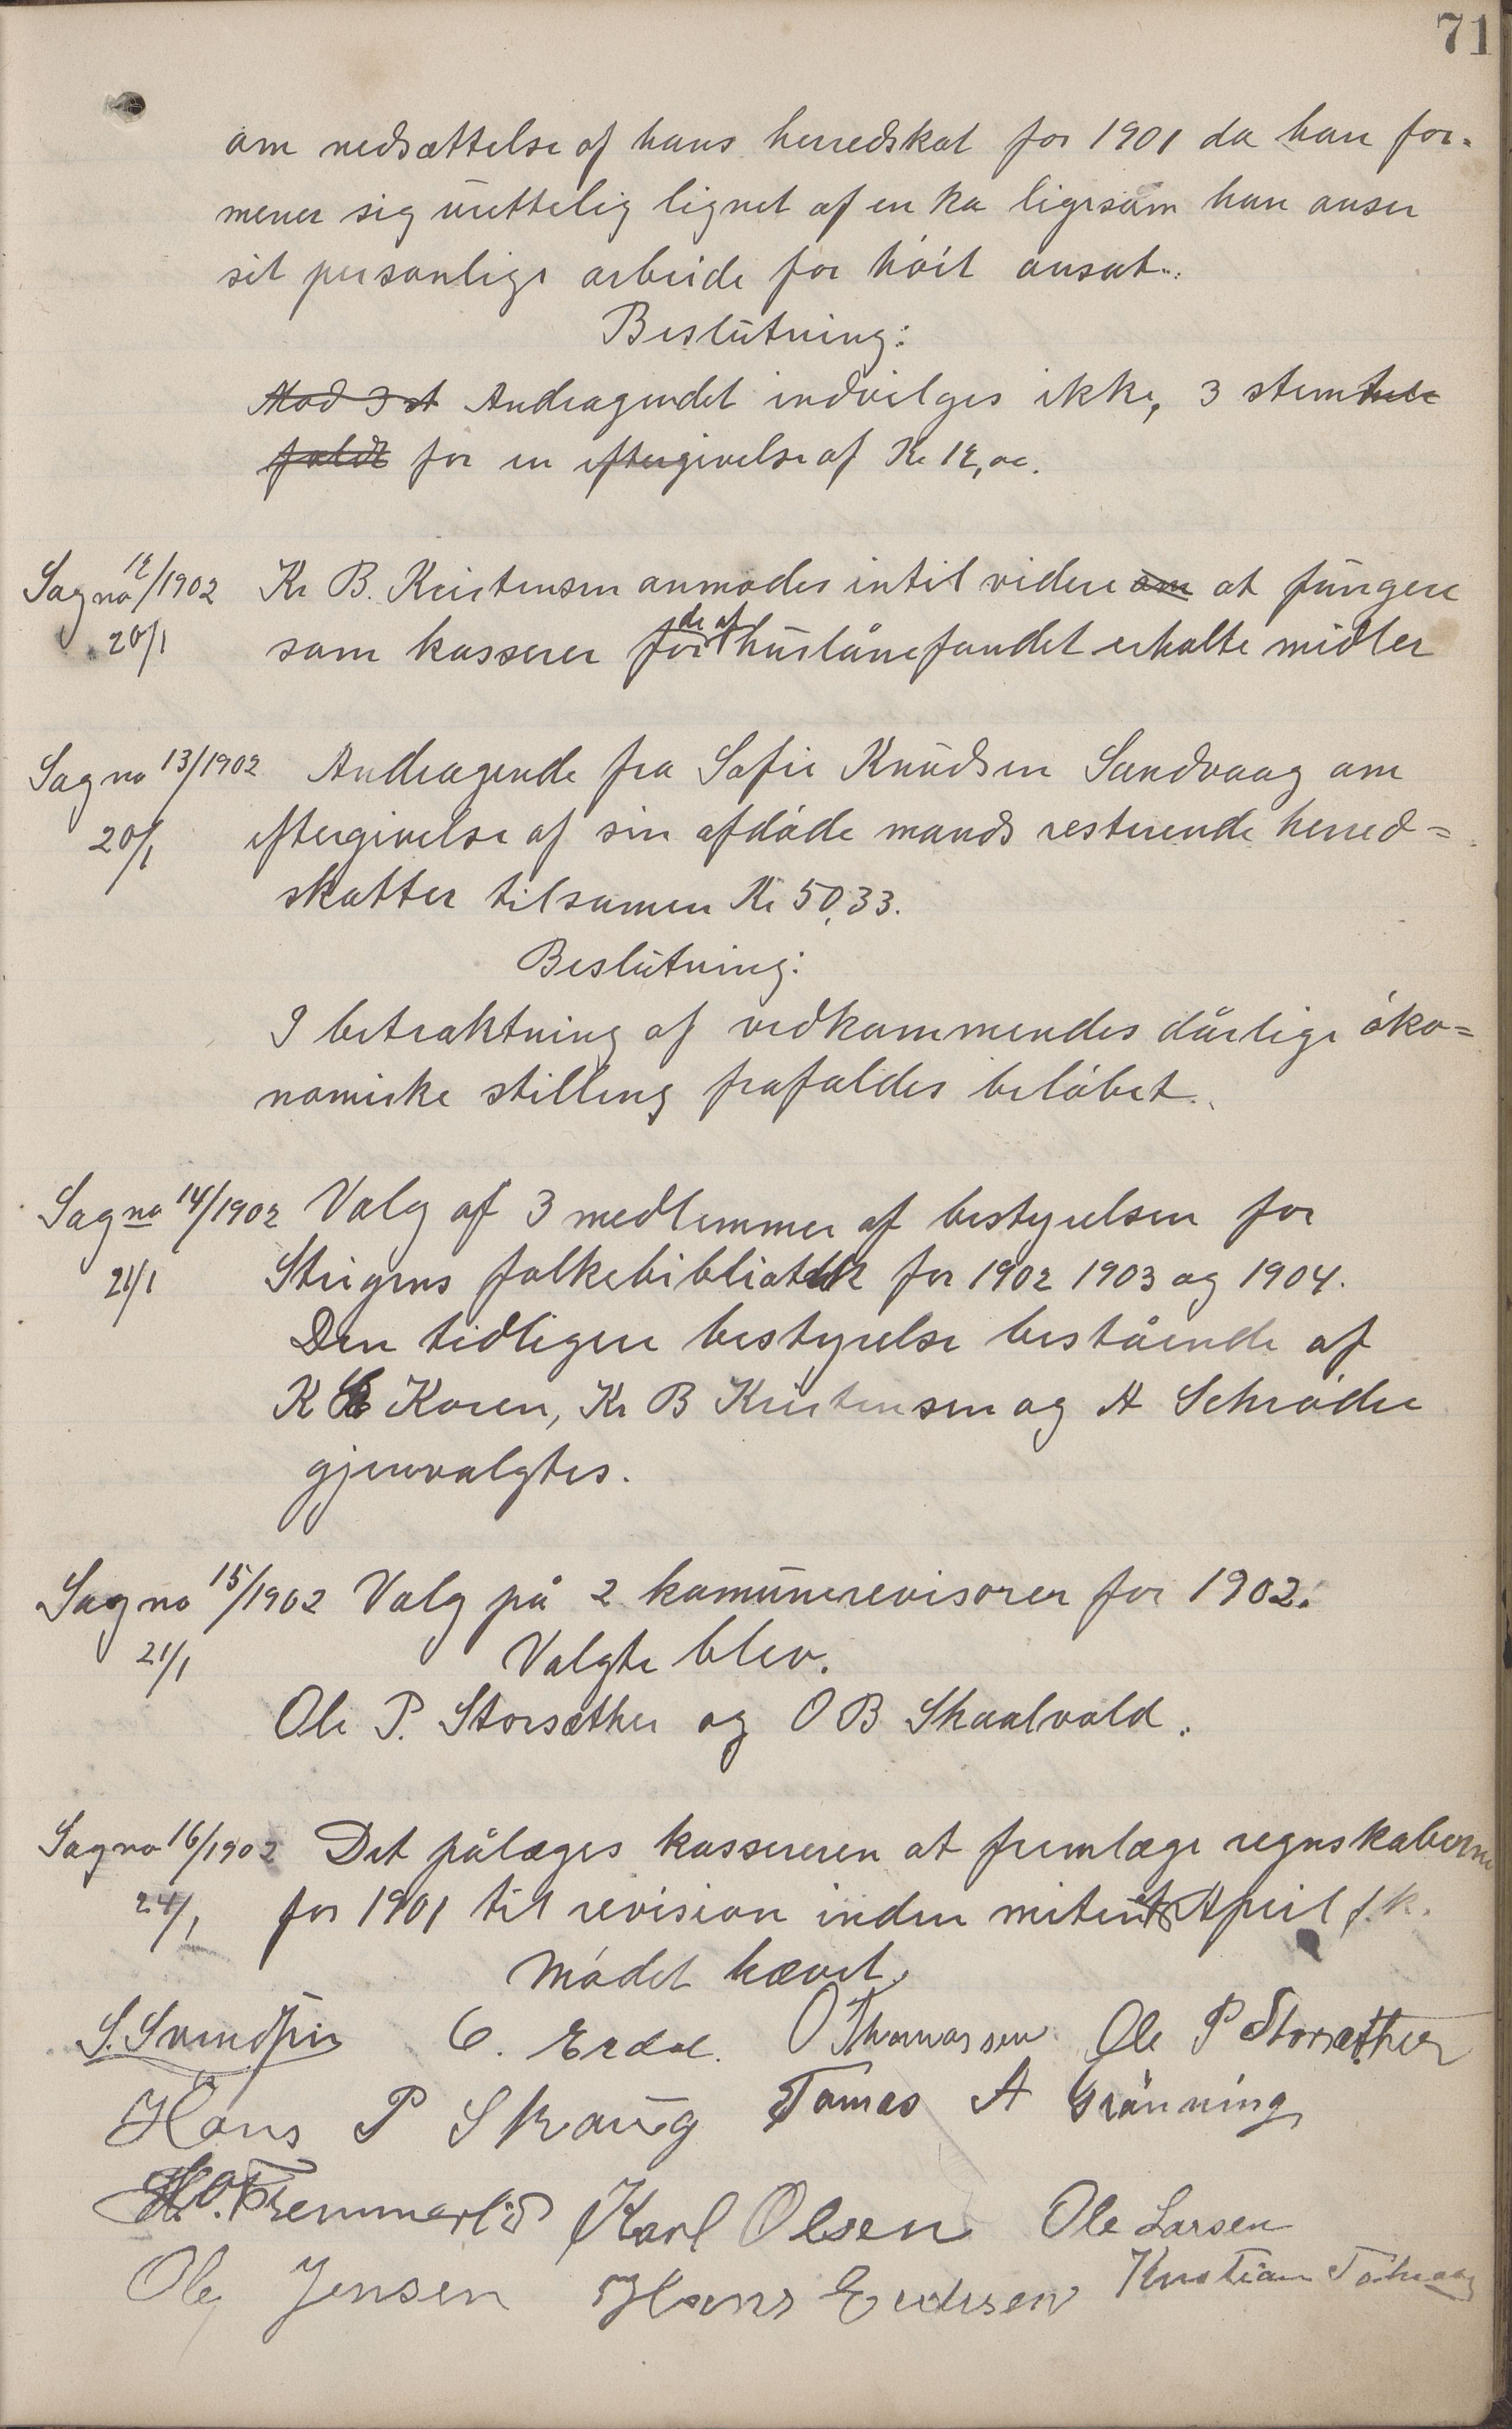 71
om nedsættelse af hans herredskat for 1901 da han for-
mener sig urettelig lignet af en ko ligesom han anser
sit personlige arbeide for höit ansat.
Beslutning:
Mod 3 st Andragendet indvilges ikke, 3 stemte
faldt for en eftergivelse af Kr 12,00.
Sag no 12/1902 Kr B. Kristensen anmodes intil videre om at fungere
20/1 som kasserer for de af huslånefondet erholte midler
Sag no 13/1902 Andragende fra Sofie Knudsen Sandvaag om
20/1 eftergivelse af sin afdöde mands resterende herred=
skatter tilsamen Kr 50,33.
Beslutning:
I betraktning af vedkommendes dårlige öko=
nomiske stilling frafaldes belöbet.
Sag no 14/1902 Valg af 3 medlemmer af bestyrelsen for
21/1 Steigens folkebibliothek for 1902 1903 og 1904.
Den tidligere bestyrelse bestående af
K Koren, Kr B Kristensen og A Schröder
gjenvalgtes.
Sag no 15/1902 Valg på 2 komunerevisorer for 1902.
21/1 Valgte blev.
Ole P. Storsæther og O B Skaalvold.
Sag no 16/1902 Det pålæges kassereren at fremlæge regnskaberne
24/1 for 1901 til revision inden miten af April f.k.
Mödet hævet.
S. Svendsen C. Erdal. O Thomassen Ole P Storsæther
Hans P Skaug Tomas A Grönning
H. O. Kremmervig Karl Olsen Ole Larsen
Ole Jensen Hans Eriksen Kristian